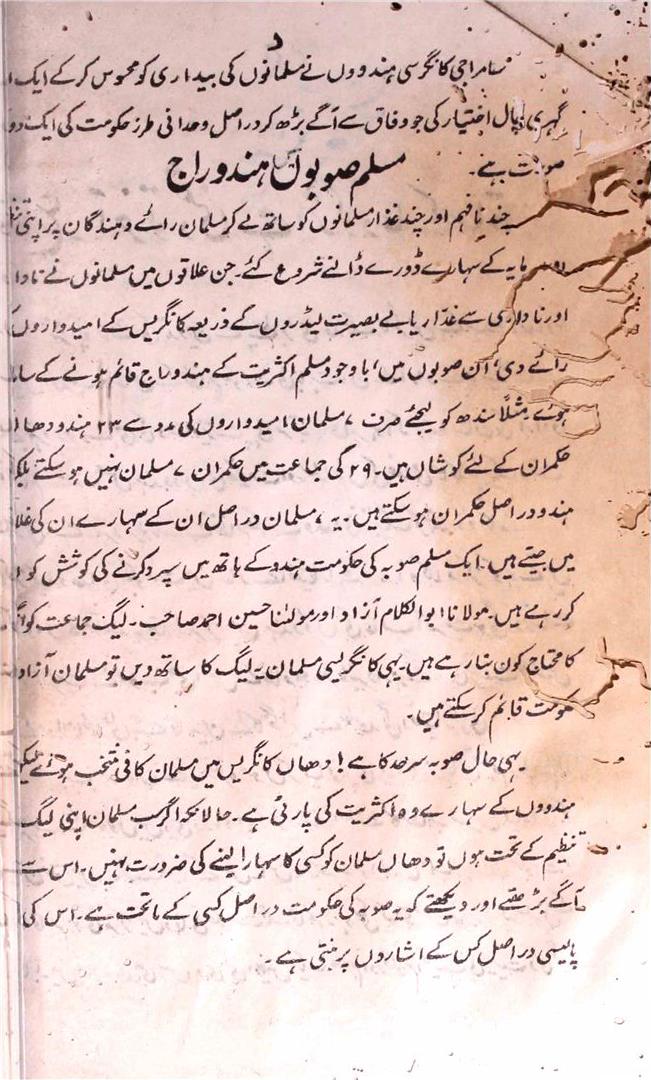 د
سامراجی کانگرسی ہندووں نے مسلمانوں کی بیداری کو محسوس کرکے ایک
گہری چال اختیار کی جو وفاق سے آگے بڑھ کر دراصل وحدانی طرز حکومت کی ایک
صورت ہے۔
مسلم صوبوں میں ہندو راج
چند نافہم اور چند غدار مسلمانوں کو ساتھ لے کر مسلمان رائے دہندگان پر اپنی
سرمایہ کے سہارے ڈورے ڈالنے شروع کئے۔ جن علاقوں میں مسلمانوں نے
اور ناداری سے غدار یا بے بصیرت لیڈروں کے ذریعہ کانگریس کے امیدواروں
رائے دی، ان صوبوں میں، باوجود مسلم اکثریت کے ہندو راج قائم ہونے کے
ہوئے مثلاً سندھ کو لیجئے صرف ۷ مسلمان امیدواروں کی مدد سے ۲۳ ہندو دھاں
حکمران کے لئے کوشاں ہیں۔ ۲۹ کی جماعت میں حکمران ۷ مسلمان نہیں ہو سکتے بلکہ
ہندو دراصل حکمران ہو سکتے ہیں۔ یہ ۷ مسلمان دراصل ان کے سہارے ان کی
میں جیتے ہیں۔ ایک مسلم صوبہ کی حکومت ہندو کے ہاتھ میں سپرد کرنے کی کوشش کو
کر رہے ہیں۔ مولانا ابوالکلام آزاد اور مولٰنا حسین احمد صاحب۔ لیگ جماعت کو
کا محتاج کون بنا رہے ہیں۔ یہی کانگریسی مسلمان یہ لیگ کا ساتھ دیں تو مسلمان آزاد
حکومت قائم کر سکتے ہیں۔
یہی حال صوبہ سرحد کا ہے! دھاں کانگریس میں مسلمان کافی منتخب ہوئے لیکن
ہندووں کے سہارے وہ اکثریت کی پارٹی ہے۔ حالانکہ اگر سب مسلمان اپنی لیگ
تنظیم کے تحت ہوں تو دھاں مسلمان کو کسی کا سہارا لینے کی ضرورت نہیں۔ اس سے
آگے بڑھئے اور دیکھئے کہ یہ صوبہ کی حکومت دراصل کسی کے ماتحت ہے۔ اس کی
پالیسی دراصل کس کے اشاروں پر بنتی ہے۔